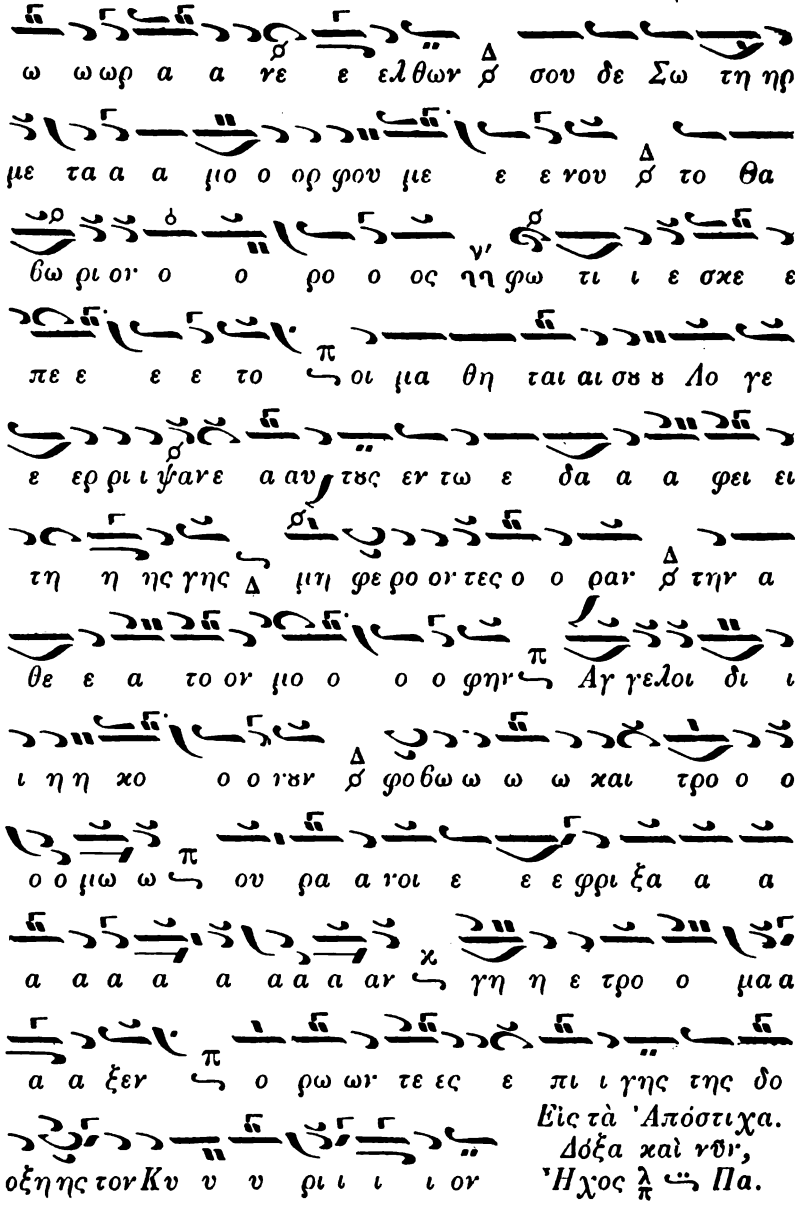 ω ω ωρ α α νε ε ελ θων Δ σου δε Σω τη ηρ
με τα α α μο ο ορ φου με ε ε νου Δ το Θα
βω ρι ον ο ο ρο ο ος ν′ ηη φω τι ι ε σκε ε
πε ε ε ε το π οι μα θη ται αι σȣ ȣ Λο γε
ε ερ ρι ι ψαν ε α αυ τȣς εν τω ε δα α α φει ει
τη η ης γης Δ μη φε ρο ον τες ο ο ραν Δ την α
θε ε α το ον μο ο ο ο φην π Αγ γελοι δι ι
ι η η κο ο ο νȣν Δ φο βω ω ω ω και τρο ο ο
ο ο μω ω π ου ρα α νοι ε ε ε φρι ξα α α
α α α α α α α α αν κ γη η ε τρο ο μα α
α α ξεν π ο ρω ων τε ες ε πι ι γης της δο
οξ η ης τον Κυ υ υ ρι ι ι ι ον
Εἰς τὰ Ἀπόστιχα.
Δόξα καὶ νῦν,
Ἦχος λ π Πα.